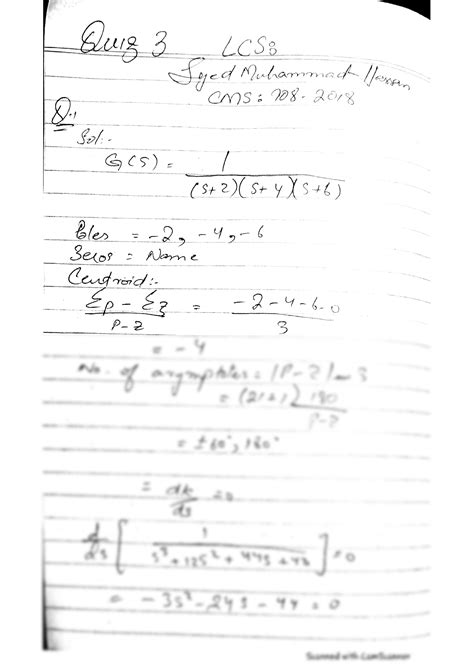 Quiz 3 LCS:
Syed Muhammad Hassan
CMS: 708-2018
Q.1
Sol:-
G(S) = 1
(S+2)(S+4)(S+6)
Poles = -2, -4, -6
Zeros = None
Centroid:-
Σp - Σz = -2-4-6-0
P-Z 3
= -4
No. of asymptotes = |P-Z| = 3
= (2l+1) 180
P-Z
= ±60°, 180°
= dk = 0
ds
d [ 1 ] = 0
ds s³+12s²+44s+48
= -3s²-24s-44 = 0
Scanned with CamScanner